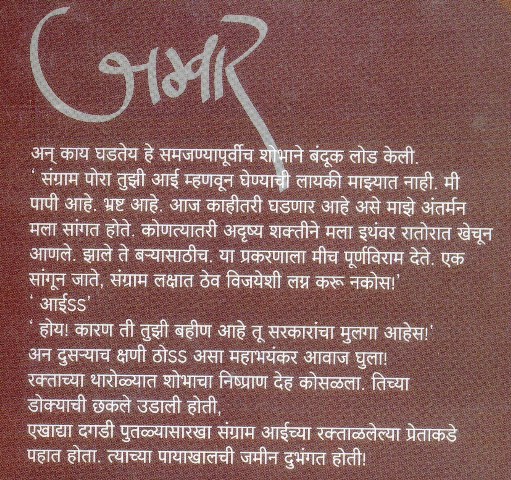 जमार
अन् काय घडतेय हे समजण्यापूर्वीच शोभाने बंदूक लोड केली.
' संग्राम पोरा तुझी आई म्हणवून घेण्याची लायकी माझ्यात नाही. मी
पापी आहे. भ्रष्ट आहे. आज काहीतरी घडणार आहे असे माझे अंतर्मन
मला सांगत होते. कोणत्यातरी अदृष्य शक्तीने मला इथंवर रातोरात खेचून
आणले. झाले ते बऱ्यासाठीच. या प्रकरणाला मीच पूर्णविराम देते. एक
सांगून जाते, संग्राम लक्षात ठेव विजयेशी लग्न करू नकोस!'
' आईSS'
' होय! कारण ती तुझी बहीण आहे तू सरकारांचा मुलगा आहेस!'
अन दुसऱ्याच क्षणी ठोSS असा महाभयंकर आवाज घुला!
रक्ताच्या थारोळ्यात शोभाचा निष्प्राण देह कोसळला. तिच्या
डोक्याची छकले उडाली होती,
एखाद्या दगडी पुतळ्यासारखा संग्राम आईच्या रक्ताळलेल्या प्रेताकडे
पहात होता. त्याच्या पायाखालची जमीन दुभंगत होती!